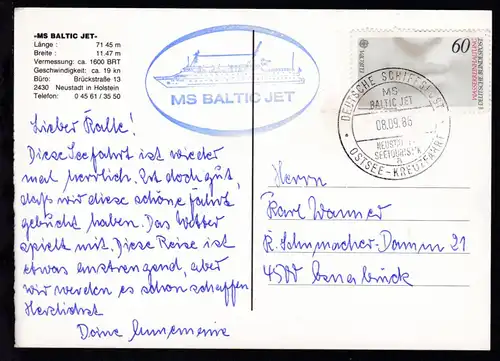 -MS BALTIC JET-
Länge : 71.45 m
Breite : 11.47 m
Vermessung: ca. 1600 BRT
Geschwindigkeit: ca. 19 kn
Büro: Brückstraße 13
2430 Neustadt in Holstein
Telefon: 0 45 61 / 35 50
MS BALTIC JET
60
DEUTSCHE SCHIFFSPOST
MS
BALTIC JET
08.09.86
OSTSEE-KREUZFAHRT
Lieber Kalle!
Diese Seefahrt ist wieder
mal herrlich. Ist doch gut,
daß wir diese schöne Fahrt
gebucht haben. Das Wetter
spielt mit. Diese Reise ist
etwas anstrengend, aber
wir werden es schon schaffen
Herzlichst
Deine
Herrn
Karl Wanner
K. Schumacher-Damm 21
4500 Osnabrück